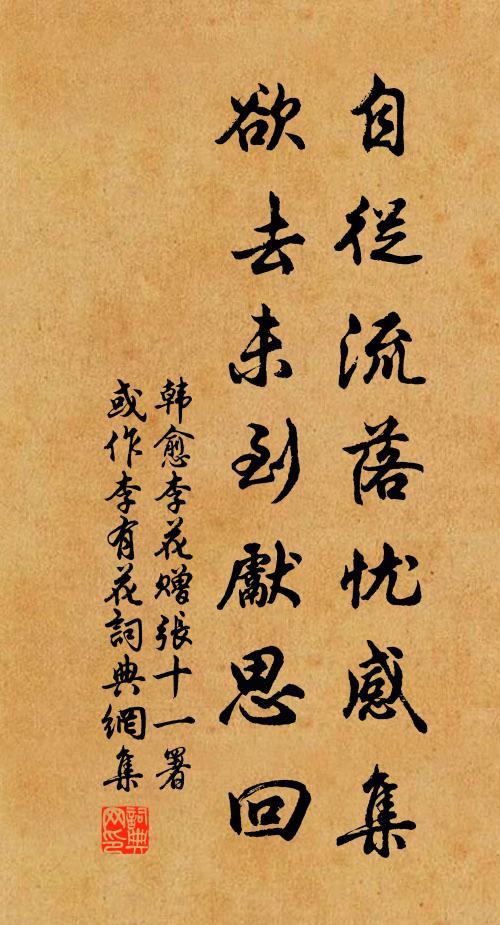 自從流落忧感集
欲去未到獻思回
韩愈李花赠張十一署
或作李有花詞典網集
詞典
网印